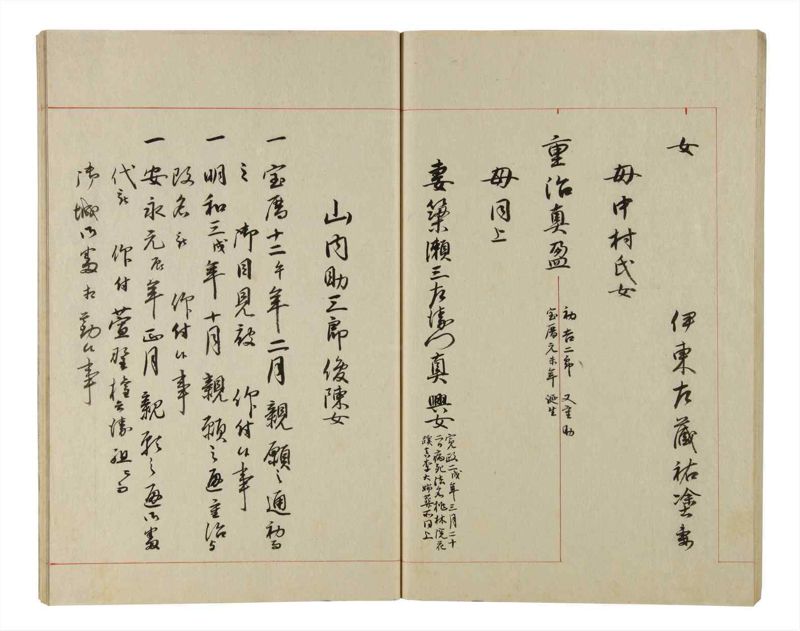 女
伊東左蔵祐塗妻
母中村氏女
重治真盈
初吉二郎 又重助
宝暦元未年誕生
母同上
妻築瀬三左衛門真興女
寛政二戌年三月二十
日病死法名桃林院花
山内助三郎俊陳女
一 宝暦十二午年二月親願之通初而
之御目見被 仰付候事
一 明和三戌年十月親願之通重治与
改名被 仰付候事
一 安永元辰年正月親願之通御番
代被 仰付萱野権兵衛組ニ而
御城御番相勤候事